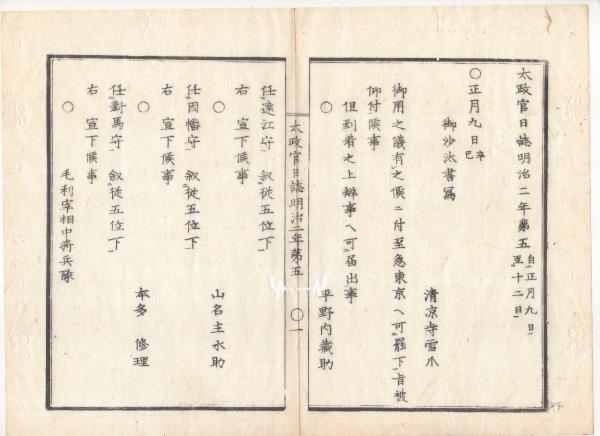 太政官日誌明治二年第五 自正月九日 至十二日
〇正月九日 辛巳
御沙汰書寫
清凉寺雪爪
御用之議有之候ニ付至急東京ヘ可罷下旨被
仰付候事
但到着之上辨事ヘ可届出事
〇
平野内藏助
太政官日誌明治二年第五 〇一
任遠江守 叙從五位下
右 宣下候事
〇
山名主水助
任因幡守 叙從五位下
右 宣下候事
〇
本多 修理
任對馬守 叙從五位下
右 宣下候事
〇
毛利宰相中將兵隊